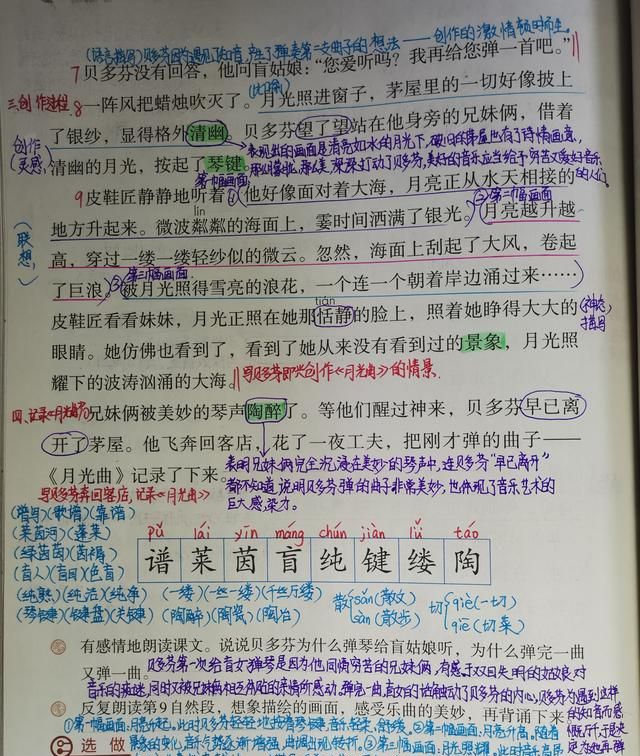 (语言描写)贝多芬因为遇见知音,产生了弹奏第二支曲子的想法——创作的激情顿时而生。
7贝多芬没有回答,他问盲姑娘:“您爱听吗?我再给您弹一首吧。”
三、创作过程。
8一阵风把蜡烛吹灭了。月光照进窗子,茅屋里的一切好像披上
了银纱,显得格外清幽。贝多芬望了望站在他身旁的兄妹俩,借着
创作灵感
表现出的画面是清亮如水的月光下,破旧的茅屋也有了诗情画意,
清幽的月光,按起了琴键。
美好的音乐应当给予穷苦又爱好音乐的人们。
第一幅画面
9皮鞋匠静静地听着。他好像面对着大海,月亮正从水天相接的
②第二幅画面
lín
地方升起来。微波粼粼的海面上,霎时间洒满了银光。月亮越升越
(联想)
高,穿过一缕一缕轻纱似的微云。忽然,海面上刮起了大风,卷起
③第三幅画面
了巨浪。被月光照得雪亮的浪花,一个连一个朝着岸边涌过来……
tián
皮鞋匠看看妹妹,月光正照在她那恬静的脸上,照着她睁得大大的
(神态描写)
眼睛。她仿佛也看到了,看到了她从来没有看到过的景象,月光照
耀下的波涛汹涌的大海。
写贝多芬即兴创作《月光曲》的情景.
四、记录《月光曲》
兄妹俩被美妙的琴声陶醉了。等他们醒过神来,贝多芬早已离
开了茅屋。他飞奔回客店,花了一夜工夫,把刚才弹的曲子——
《月光曲》记录了下来。
表明兄妹俩完全沉浸在美妙的琴声中,连贝多芬“早已离开”
写贝多芬奔回客店,记录《月光曲》
都不知道,说明贝多芬弹的曲子非常美妙,也体现了音乐艺术的
巨大感染力。
(谱写)(歌谱)(靠谱)
pǔ lái yīn máng chún jiàn lǚ táo
(莱茵河)(蓬莱)
谱莱茵盲纯键缕陶
(绿茵茵)(茵褥)
(盲人)(盲目)(色盲)
(纯熟)(纯洁)(纯净)
(一缕)(一丝一缕)(千丝万缕)
散 sǎn(散文) sàn(散步)
切 qiè(一切) qiē(切菜)
(琴键)(键盘)(关键)
(陶醉)(陶瓷)(陶冶)
有感情地朗读课文。说说贝多芬为什么弹琴给盲姑娘听,为什么弹完一曲
又弹一曲。
贝多芬第一次给盲女弹琴是因为他同情穷苦的兄妹俩,有感于双目失明的姑娘对
音乐的痴迷,同时又被兄妹俩相互体贴的亲情所感动,弹完一曲,盲女的话触动了贝多芬的内心,贝多芬为遇到这样
反复朗读第9自然段,想象描绘的画面,感受乐曲的美妙,再背诵下来。
的知音而感
选做